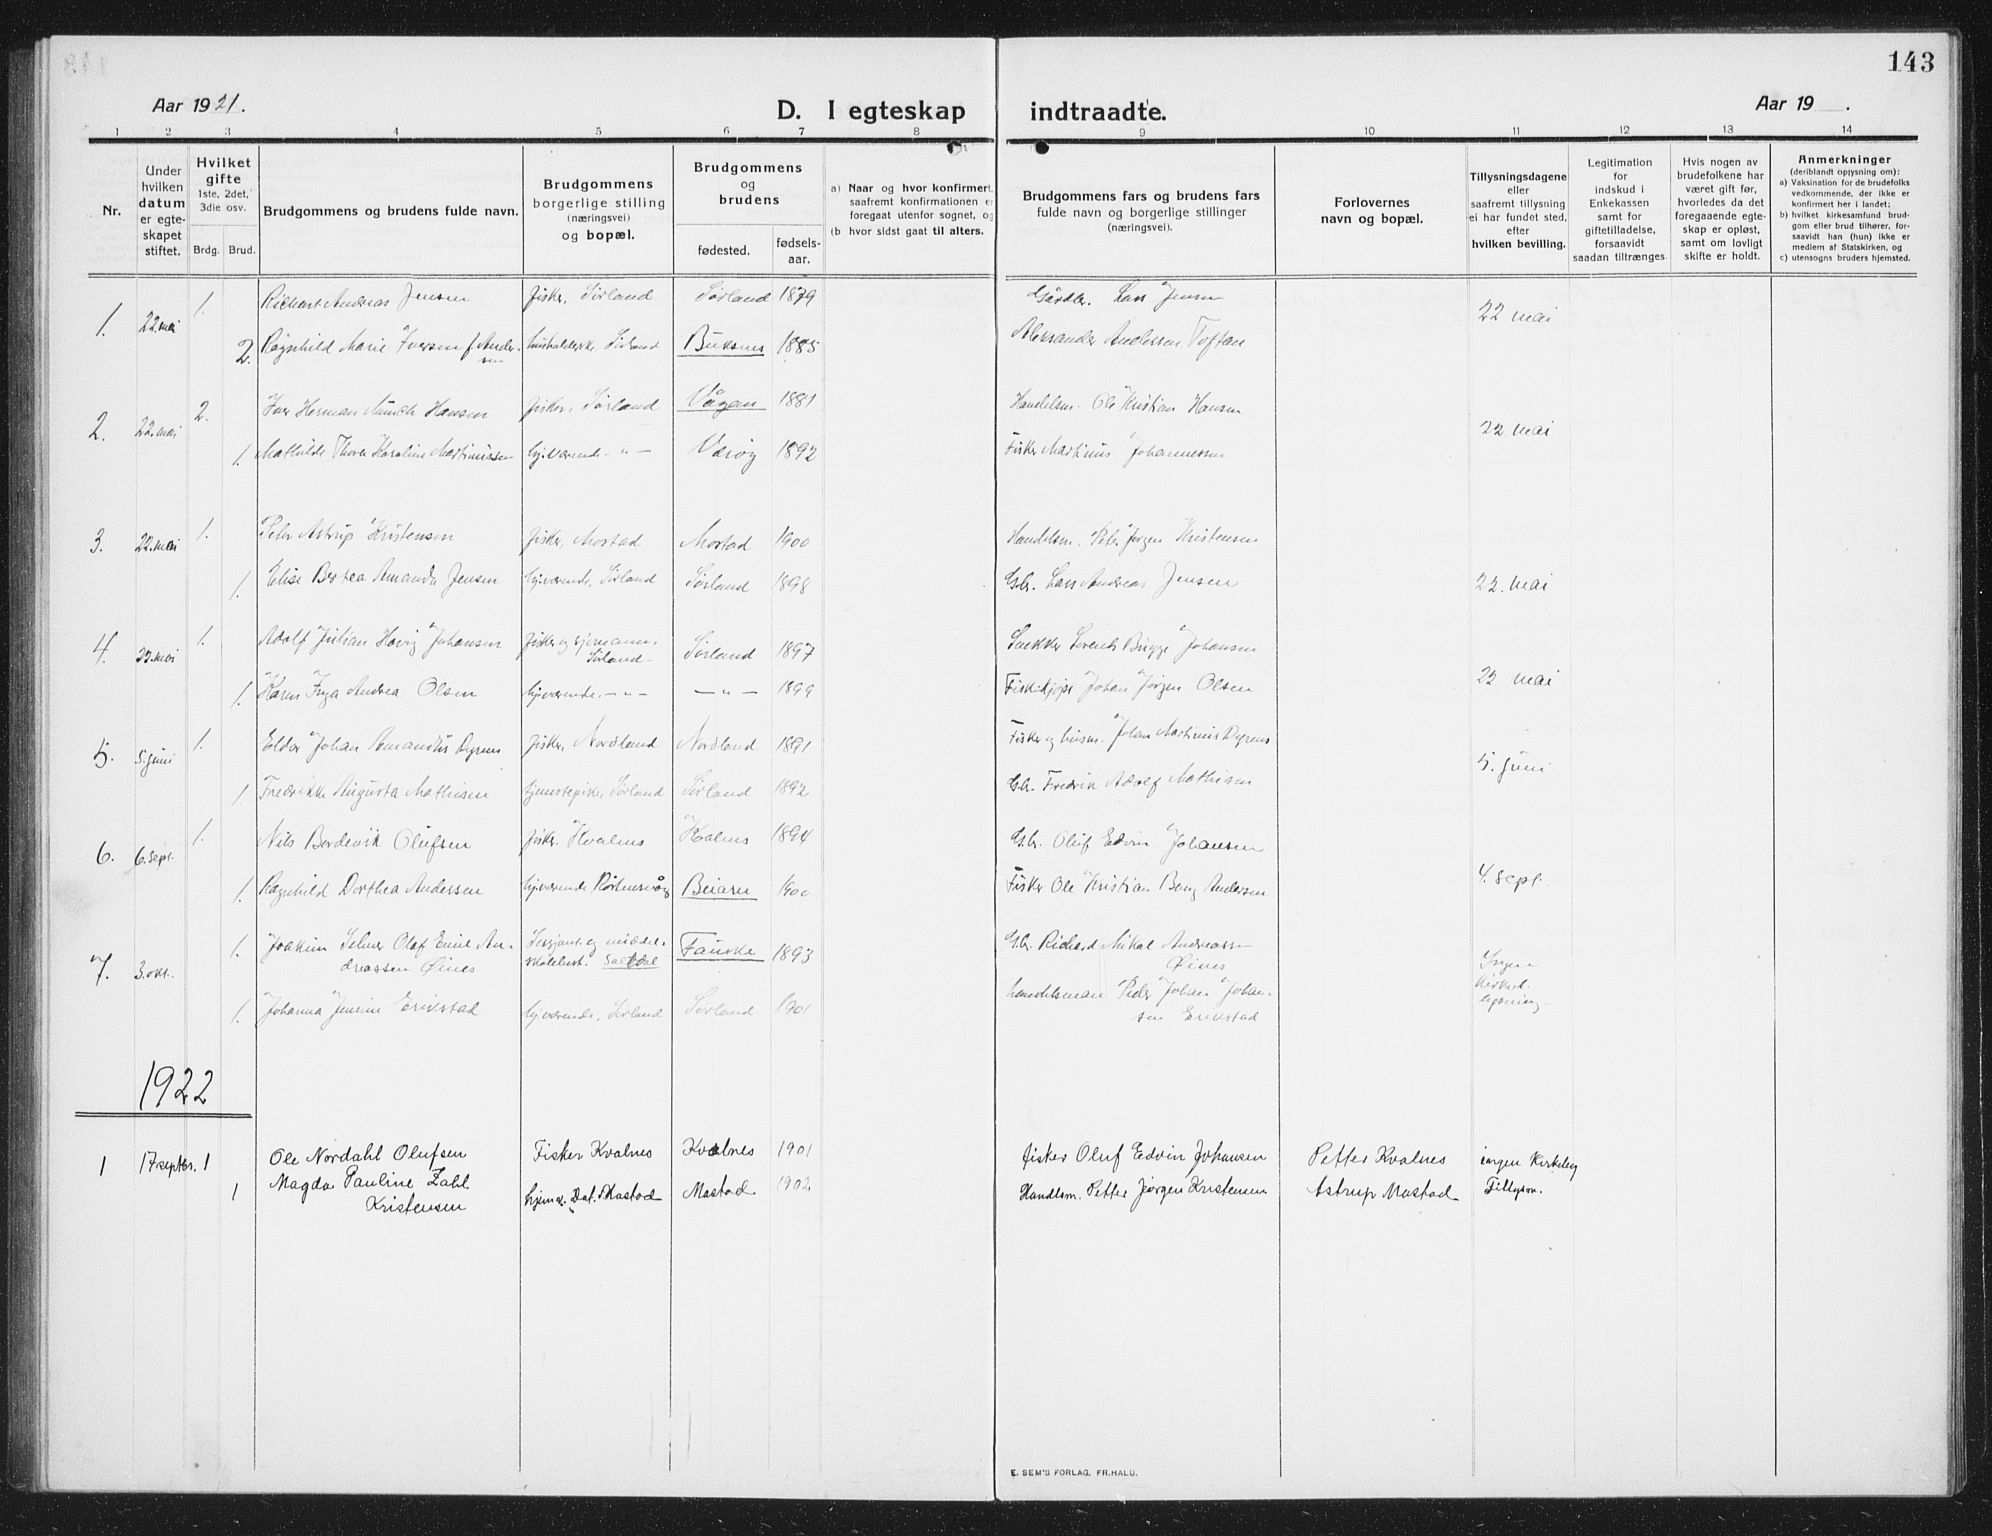 143
Aar 1921.
D. I egteskap indtraadte.
Aar 19 .
1 2 3 4 5 6 7 8 9 10 11 12 13 14
Nr.
Under
hvilken
datum
er egte-
skapet
stiftet.
Hvilket
gifte
1ste, 2det,
3die osv.
Brdg. Brud.
Brudgommens og brudens fulde navn.
Brudgommens
borgerlige stilling
(næringsvei)
og bopæl.
Brudgommens
og
brudens
fødested.
fødsels-
aar.
a) Naar og hvor konfirmert,
saafremt konfirmationen e
foregaat utenfor sognet, og
(b hvor sidst gaat til alters.
Brudgommens fars og brudens fars
fulde navn og borgerlige stillinger
(næringsvei).
Forlovernes
navn og bopæl.
Tillysningsdagene
eller
saafremt tillysning
ei har fundet sted,
efter
hvilken bevilling.
Legitimation
for
indskud i
Enkekassen
samt for
giftetilladelse,
forsaavidt
saadan tiltrænges.
Hvis nogen av
brudefolkene har
været gift før,
hvorledes da det
foregaaende egte-
skap er opløst,
samt om lovligt
skifte er holdt.
Anmerkninger
(deriblandt opjysning om):
a) Vaksination for de brudefolks
vedkommende, der ikke er
konfirmert her i landet;
b) hvilket kirkesamfund brud-
gom eller brud tilhører, for-
saavidt han (hun) ikke er
medlem af Statskirken, og
c) utensogns bruders hjemsted.
1. 22. mai 1. Richart Andreas Jensen fisker, Sørland Sørland 1879 Gårdbr. Lars Jensen 22 mai
2. Ragnhild Marie Iversen f. Ander-
sen husholderske, Sørland Buksnes 1885 Aleksander Anderssen Toftan
2. 22. mai 2. Iver Herman Munch Hansen fisker, Sørland Vågan 1881 Handelsm. Ole Kristian Hansen 22. mai
1. Mathilde Thora Karoline Martinussen hj.værende - " - Værøy 1892 Fisker Martinus Johannessen
3. 22. mai 1. Peter Astrup Kristensen fisker, Mostad Mostad 1900 Handelsm. Peter Jørgen Kristensen
1. Elise Bertea Amanda Jensen hj.værende, Sørland Sørland 1898 Gbr. Lars Andreas Jensen 22. mai
4. 22. mai 1. Adolf Julian Hovig Johansen fisker og sjømann,
Sørland Sørland 1897 Snekker Lorents Brygge Johansen
1. Karen Inga Andrea Olsen hj.værende - " - - " - 1899 Fiskekjøper Johan Jørgen Olsen 22. mai
5. 5. juni 1. Eldar Johan Amandus Dyrens fisker, Nordland Nordland 1891 Fisker og husm. Johan Martinus Dyrens
1. Fredrikke Augusta Mathisen tjenestepike, Sørland Sørland 1892 Gbr. Fredrik Adolf Mathisen 5. juni
6. 6. sept. 1. Nils Bordevik Olufsen fisker, Kvalnes Kvalnes 1894 Gbr. Oluf Edvin Johansen
1. Ragnhild Dorthea Anderssen hj.værende Beiarn 1900 Fisker Ole Kristian Berg Andersen 4. sept.
7. 3. okt. 1. Joakim Selmer Olaf Emil An-
dreassen Øines Sersjant og middel-
skolelær. Saltdal Fauske 1893 Gbr. Richard Mikal Andreassen
Øines Ingen
kirkel.
lysning.
1. Johanna Jensine Erikstad hj.værende, Sørland Sørland 1901 handelsman Peder Johan Johan-
sen Erikstad
1922
1 17 septbr. 1 Ole Nordahl Olufsen Fisker Kvalnes Kvalnes 1901 fisker Oluf Edvin Johansen Petter Kvalnes ingen Kirkelig
1 Magda Pauline Zahl
Kristensen hjemv. Dat. Mostad Mostad 1902 Handlsm. Petter Jørgen Kristensen Astrup Mostad Tillysn.
E. SEM'S FORLAG. FR.HALD.